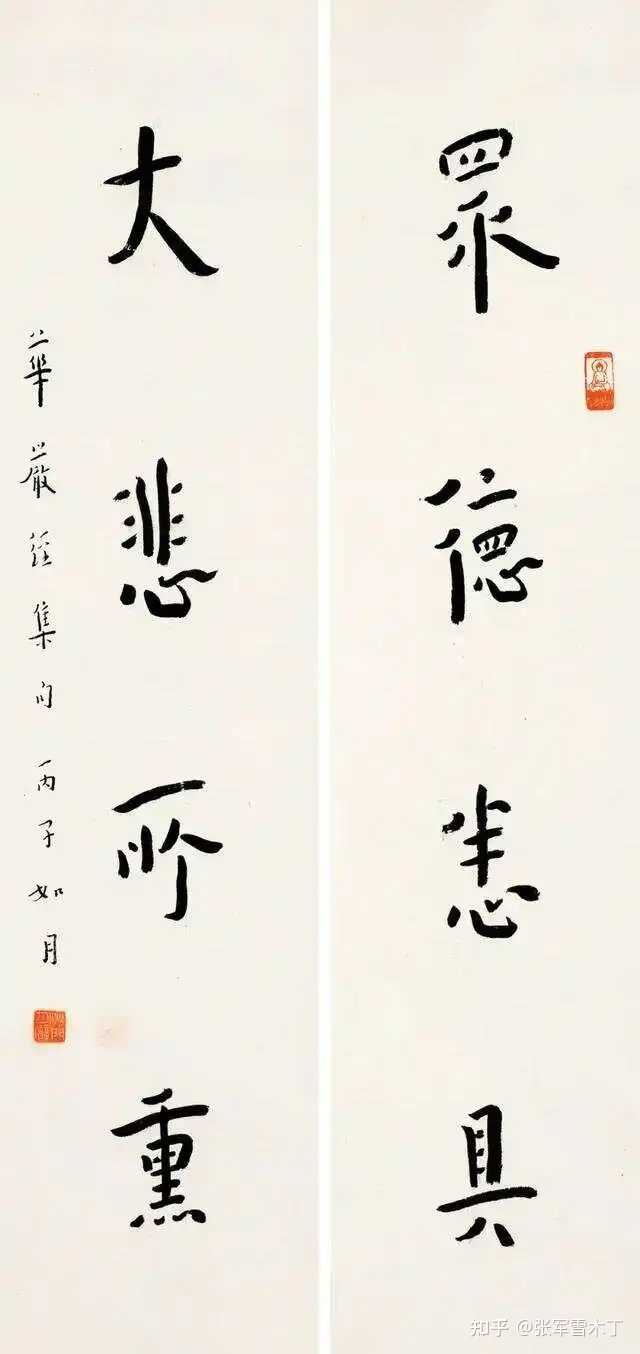 眾德悉具
大悲所熏
華嚴經集句 丙子如月
知乎 @张军雪木丁